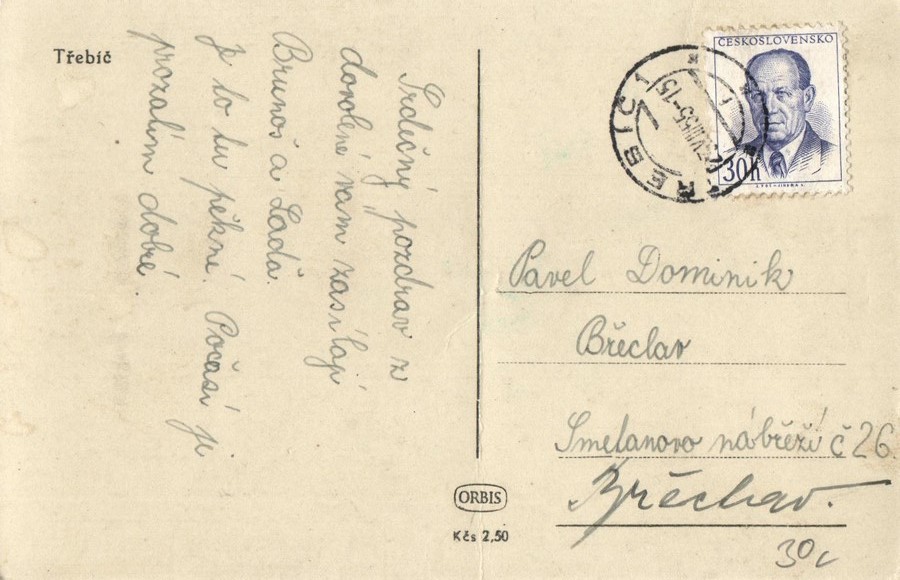 Třebíč
Srdečný pozdrav z
dovolené vám zasílají
Brunoš a Ladă.
Je to tu pěkné. Počasí je
prozatím dobré.
ČESKOSLOVENSKO
30h
TŘEBÍČ 1
VIII.55-15
Pavel Dominik
Břeclav
Smetanovo nábřeží č 26
Břěclav.
ORBIS
Kčs 2,50